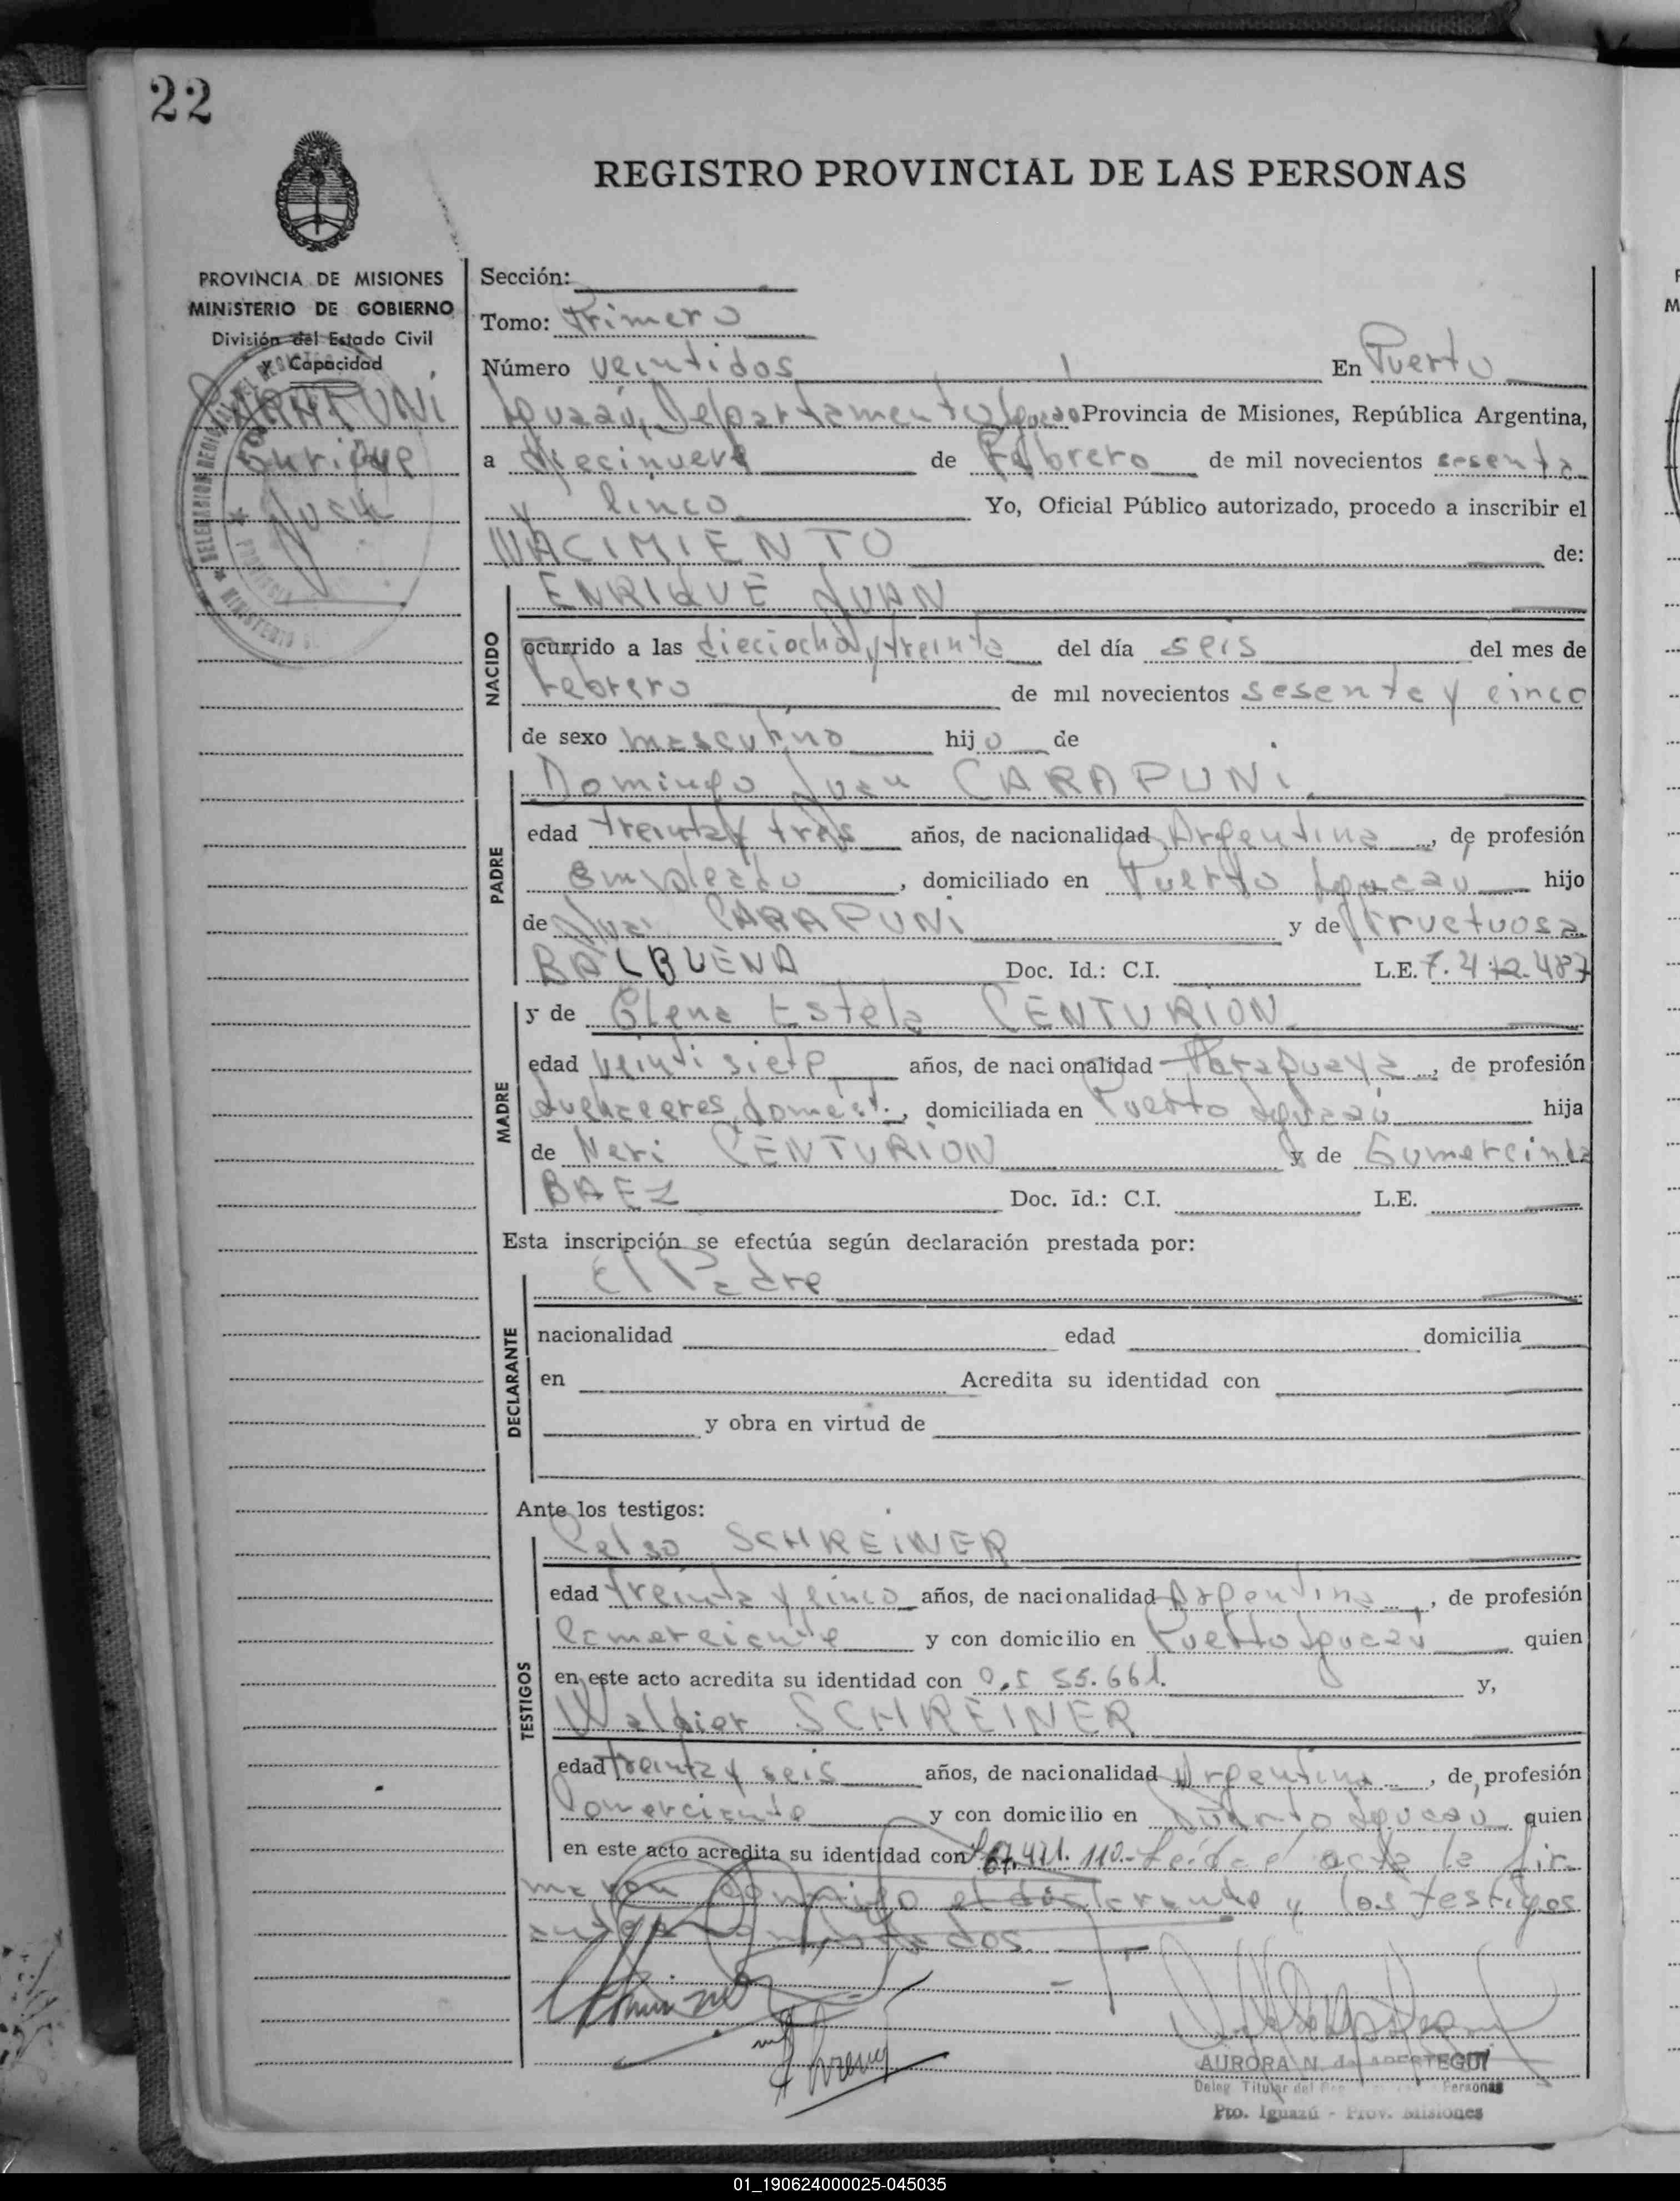 22
REGISTRO PROVINCIAL DE LAS PERSONAS
PROVINCIA DE MISIONES
MINISTERIO DE GOBIERNO
División del Estado Civil
y Capacidad
CARAPUNI
Enrique
Juan
Sección:
Tomo: Primero
Número veintidos En Puerto
Iguazú, Departamento Iguazú Provincia de Misiones, República Argentina,
a diecinueve de Febrero de mil novecientos sesenta
y cinco Yo, Oficial Público autorizado, procedo a inscribir el
NACIMIENTO de:
NACIDO
ENRIQUE JUAN
ocurrido a las dieciocho y treinta del día seis del mes de
Febrero de mil novecientos sesenta y cinco
de sexo masculino hijo de
PADRE
Domingo Juan CARAPUNI
edad treinta y tres años, de nacionalidad Argentina, de profesión
empleado, domiciliado en Puerto Iguazú hijo
de Juan CARAPUNI y de Fructuosa
BALBUENA Doc. Id.: C.I. L.E. 7.472.487
MADRE
y de Elena Estela CENTURION
edad veintisiete años, de nacionalidad Paraguaya, de profesión
quehaceres domést., domiciliada en Puerto Iguazú hija
de Neri CENTURION y de Gumercinda
BAEZ Doc. Id.: C.I. L.E.
Esta inscripción se efectúa según declaración prestada por:
DECLARANTE
El Padre
nacionalidad edad domicilia
en Acredita su identidad con
y obra en virtud de
Ante los testigos:
TESTIGOS
Celso SCHREINER
edad treinta y cinco años, de nacionalidad Argentina, de profesión
Comerciante y con domicilio en Puerto Iguazú quien
en este acto acredita su identidad con 55.661. y,
SCHREINER
edad treinta y seis años, de nacionalidad Argentina, de profesión
Comerciante y con domicilio en Puerto Iguazú quien
en este acto acredita su identidad con 110.- Leída el acta la fir
maron conmigo el declarante y los testigos
antes nombrados.
AURORA N. de APESTEGUI
Deleg. Titular del Personas
Pto. Iguazú - Prov. Misiones
01_190624000025-045035